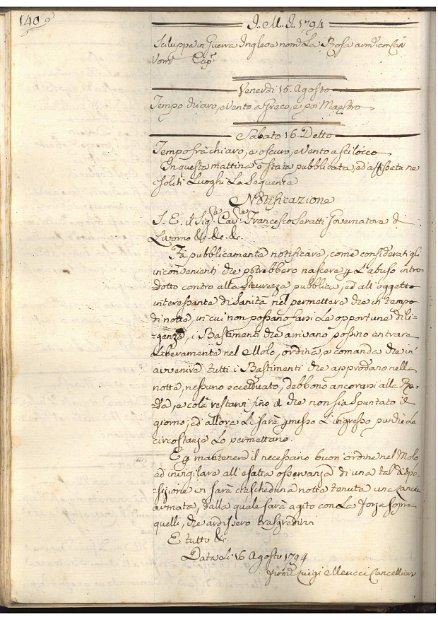 140
I. M. I. 1794
Sciluppe in Guerra Inglese nom.ta La Rosa
Venerdi 15. Agosto
Tempo chiaro, e Vento a Greco, e poi Maestro
Sabato 16. Detto
Tempo frà chiaro, e oscuro, e Vento a Scilocco
In questa mattina è stata pubblicata, ed affissata ne
soliti Luoghi La Seguente
Notificazione
S. E. il Sig.r Cav.r Francesco Seratti Governatore di
Livorno &. &. &.
Fà pubblicamente notificare, come considerati gl'
inconvenienti che potrebbero nascere l'abuso intro
dotto contro alla sicurezza pubblica, ed all'oggetto
interessante di Sanità nel permettere che in tempo
di notte, in cui non possono farsi Le opportune Dili
genze, i Bastimenti che arrivano possino entrare
Liberamente nel Molo, ordina, e comanda che in
avvenire tutti i Bastimenti che approdano nella
notte, nessuno eccettuato, debbono ancorarsi alla
e colà restarvi fino a che non sia spuntato il
giorno, ed allora Li sarà permesso L'ingresso purche Le
circostanze Lo permettano.
E per mantenere il necessario buon'ordine nel Molo
ed invigilare all'esatta osservanza di una tal dispo
sizione vi sarà ciascheduna notte tenuta una Lancia
armata, dalla quale sarà agito con La forza sopra
quelli, che ardissero trasgredire
E tutto &.
Dat. Li 16 Agosto 1794
Luigi Meucci Cancelliere